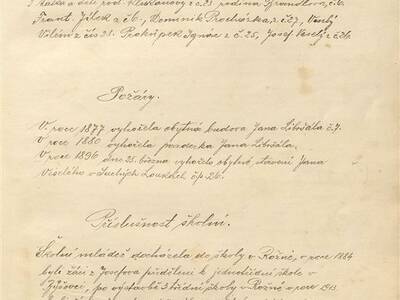 Frant. Jílek z č 6., Dominik Procházka, z č 27, Veselý
Vilém z čís 28. Prokůpek Ignác z č. 25, Josef Veselý z č 26
Požáry.
V roce 1877 vyhořela obytná budova Jana Libošála č. 7.
V roce 1880 vyhořela pazderka Jana Libošála.
V roce 1896 dne 25. března vyhořelo obytné stavení Jana
Veselého v Suchých Loukách čp 26.
Příslušnost školní.
Školní mládež docházela do školy v Rožné, v roce 1884
byli žáci z Josefova přiděleni k jednotřídní škole v
po výstavbě 3 třídní školy v Rožné v roce 1911